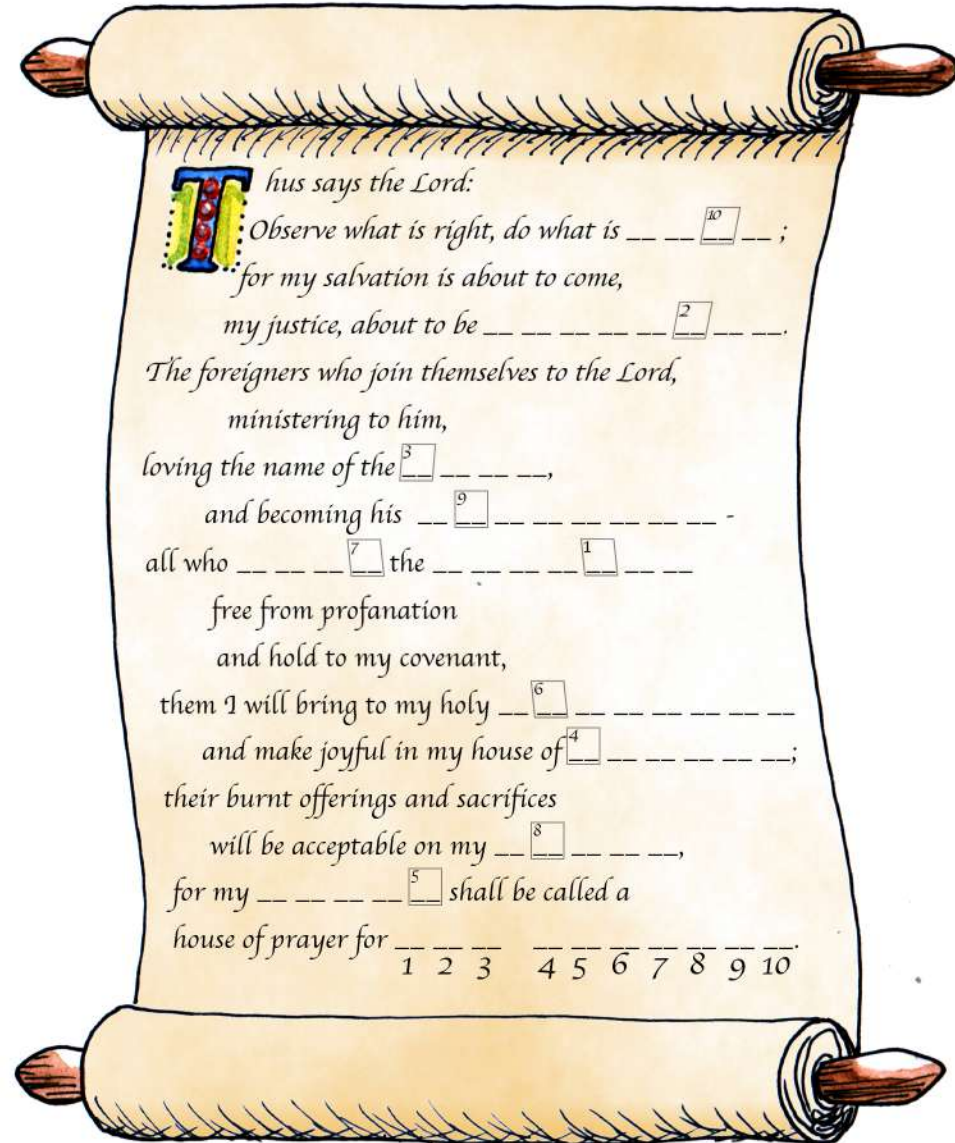 Thus says the Lord:
Observe what is right, do what is __ __ 10__ __ ;
for my salvation is about to come,
my justice, about to be __ __ __ __ __ 2__ __ __.
The foreigners who join themselves to the Lord,
ministering to him,
loving the name of the 3__ __ __ __,
and becoming his __ 9__ __ __ __ __ __ __ -
all who __ __ __ 7__ the __ __ __ __ 1__ __ __
free from profanation
and hold to my covenant,
them I will bring to my holy __ 6__ __ __ __ __ __ __
and make joyful in my house of 4__ __ __ __ __ __;
their burnt offerings and sacrifices
will be acceptable on my __ 8__ __ __ __,
for my __ __ __ __ 5__ shall be called a
house of prayer for __ __ __ __ __ __ __ __ __ __.
1 2 3 4 5 6 7 8 9 10